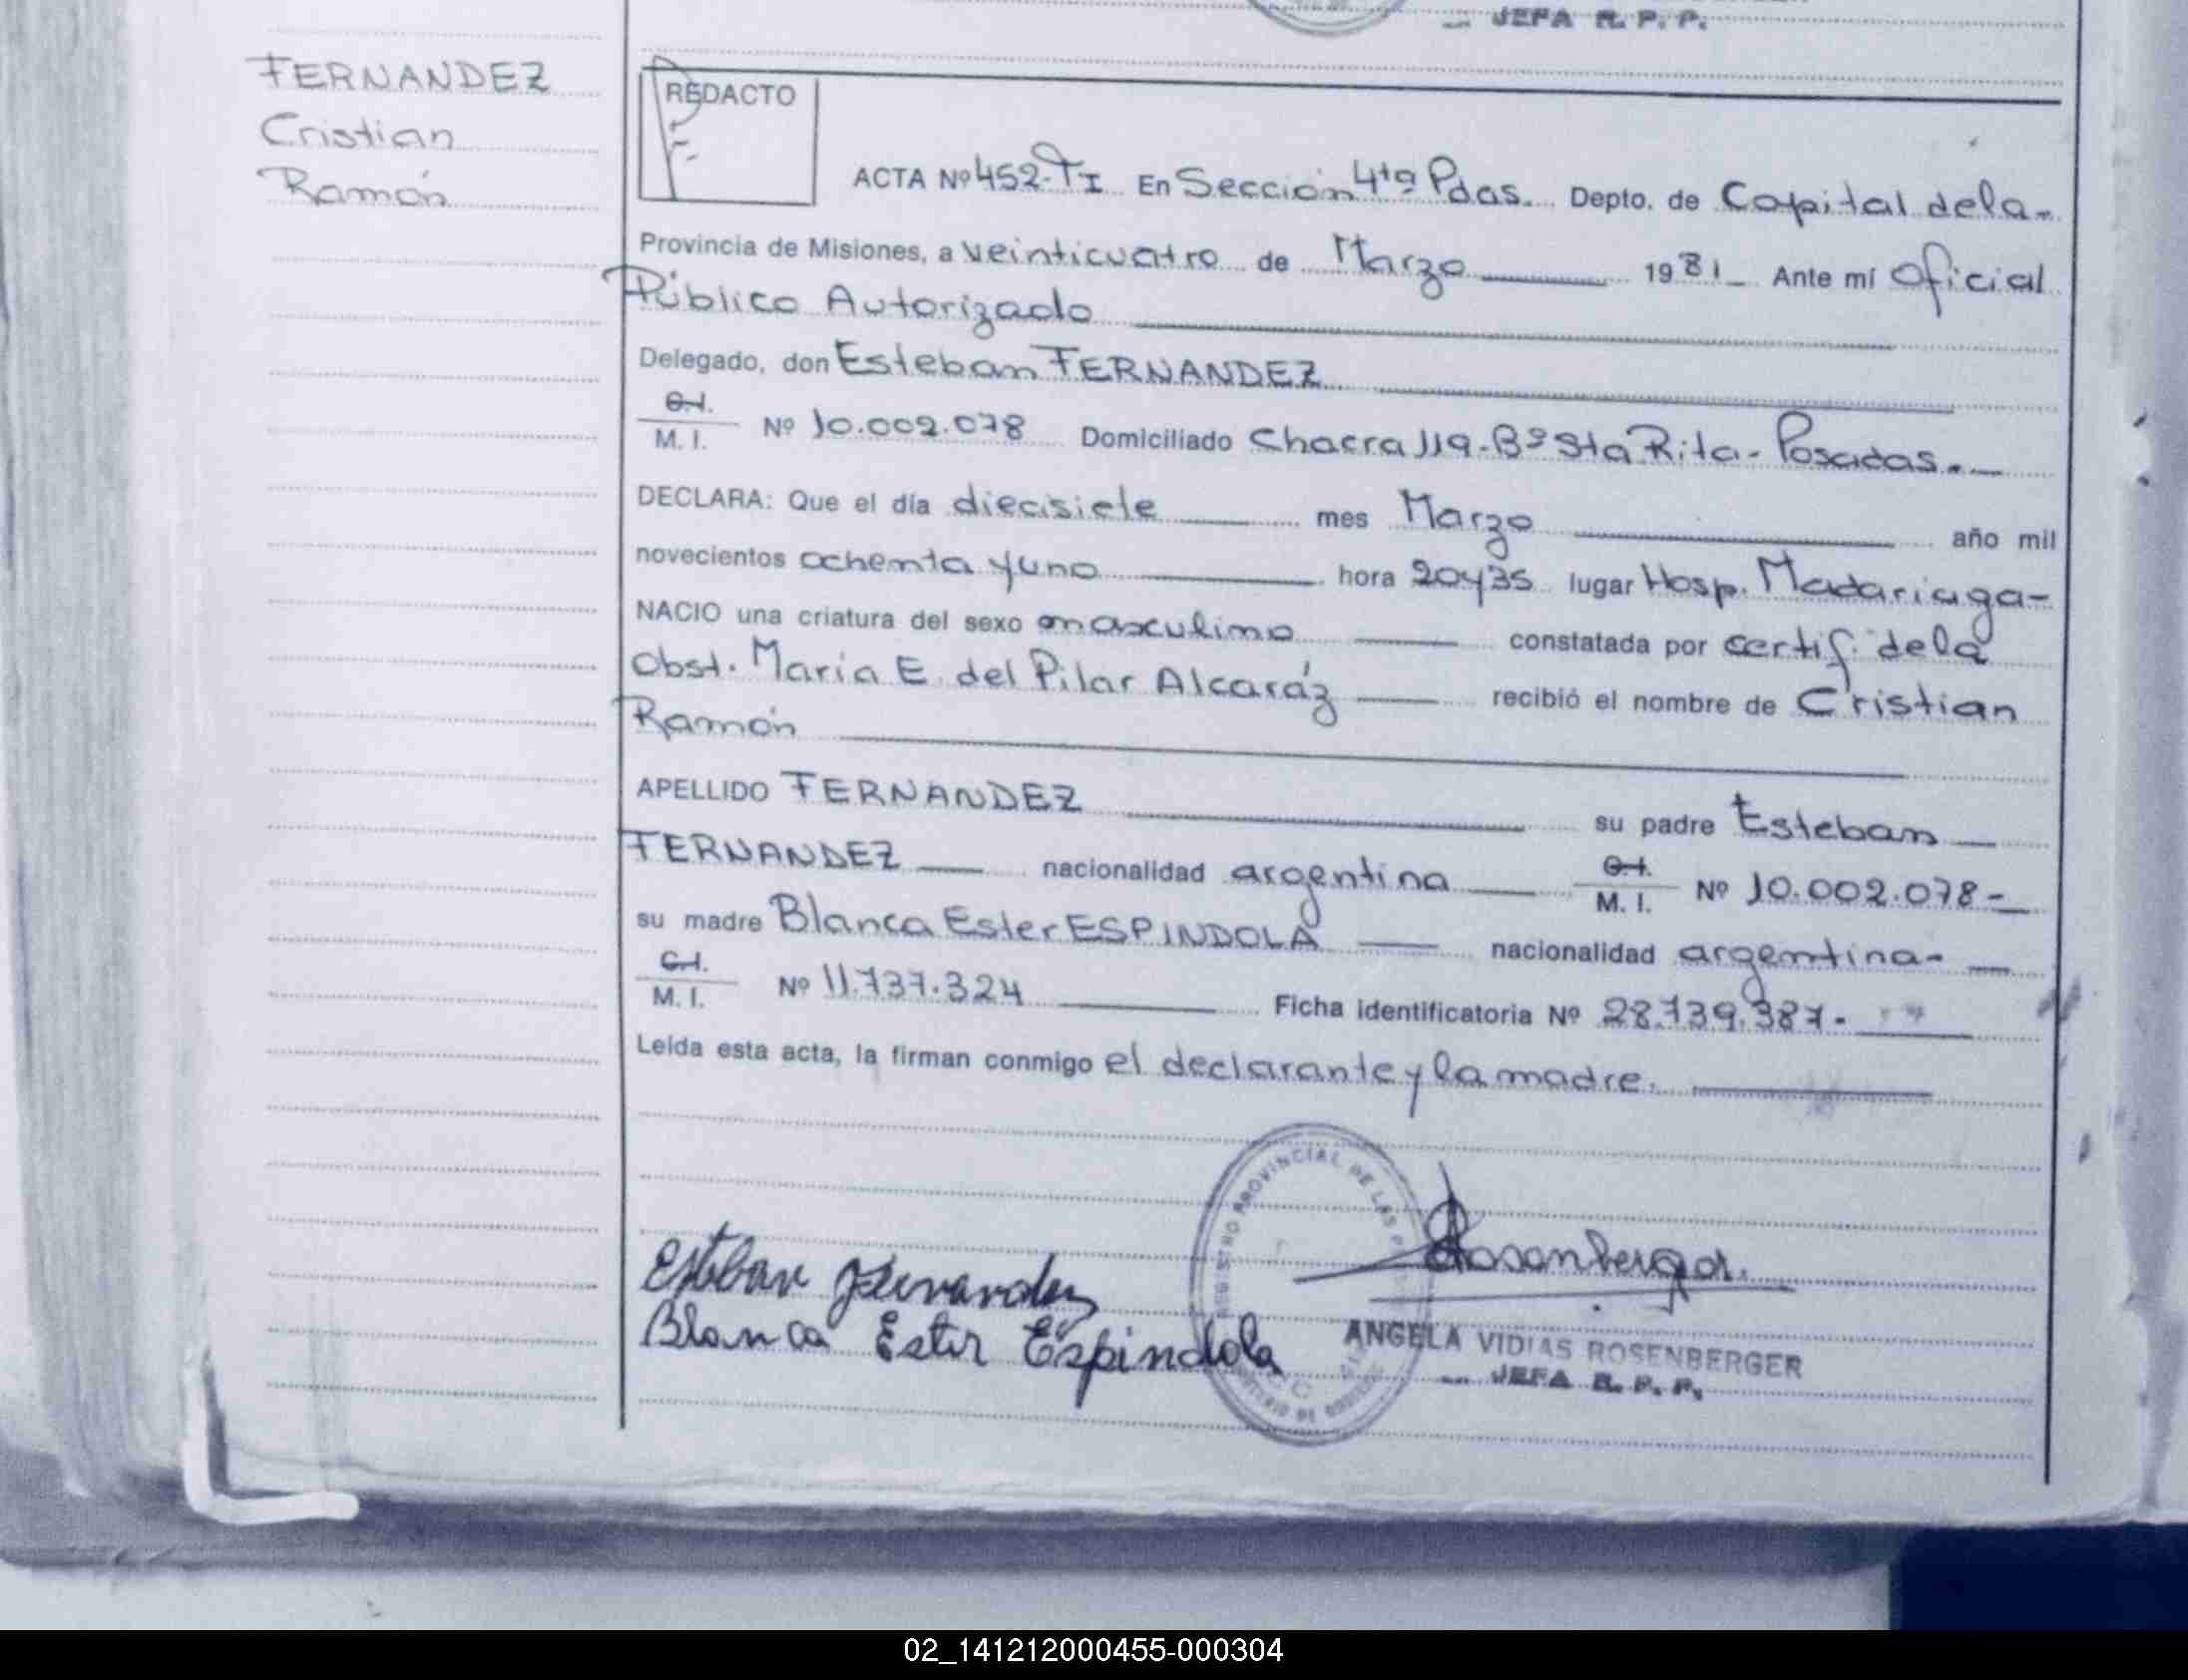 JEFA R. P. P.
FERNANDEZ
Cristian
Ramón
REDACTO
ACTA Nº 452-TI En Sección 4ta Pdas. Depto. de Capital de la-
Provincia de Misiones, a veinticuatro de Marzo 1981 Ante mí Oficial
Público Autorizado
Delegado, don Esteban FERNANDEZ
C.I.
M. I. Nº 10.002.078 Domiciliado Chacra 119-Bº Sta Rita-Posadas.
DECLARA: Que el día diecisiete mes Marzo año mil
novecientos ochenta y uno hora 20 y 35 lugar Hosp. Madariaga-
NACIO una criatura del sexo masculino constatada por certif. de la
Obst. María E. del Pilar Alcaráz recibió el nombre de Cristian
Ramón
APELLIDO FERNANDEZ su padre Esteban
FERNANDEZ nacionalidad argentina C.I. M. I. Nº 10.002.078-
su madre Blanca Ester ESPINDOLA nacionalidad argentina-
C.I.
M. I. Nº 11.737.324 Ficha identificatoria Nº 28.739.387-
Leída esta acta, la firman conmigo el declarante y la madre.
REGISTRO PROVINCIAL DE LAS
Esteban Fernandez
Rosenberger
Blanca Ester Espindola
ANGELA VIDIAS ROSENBERGER
JEFA R. P. P.
02_141212000455-000304